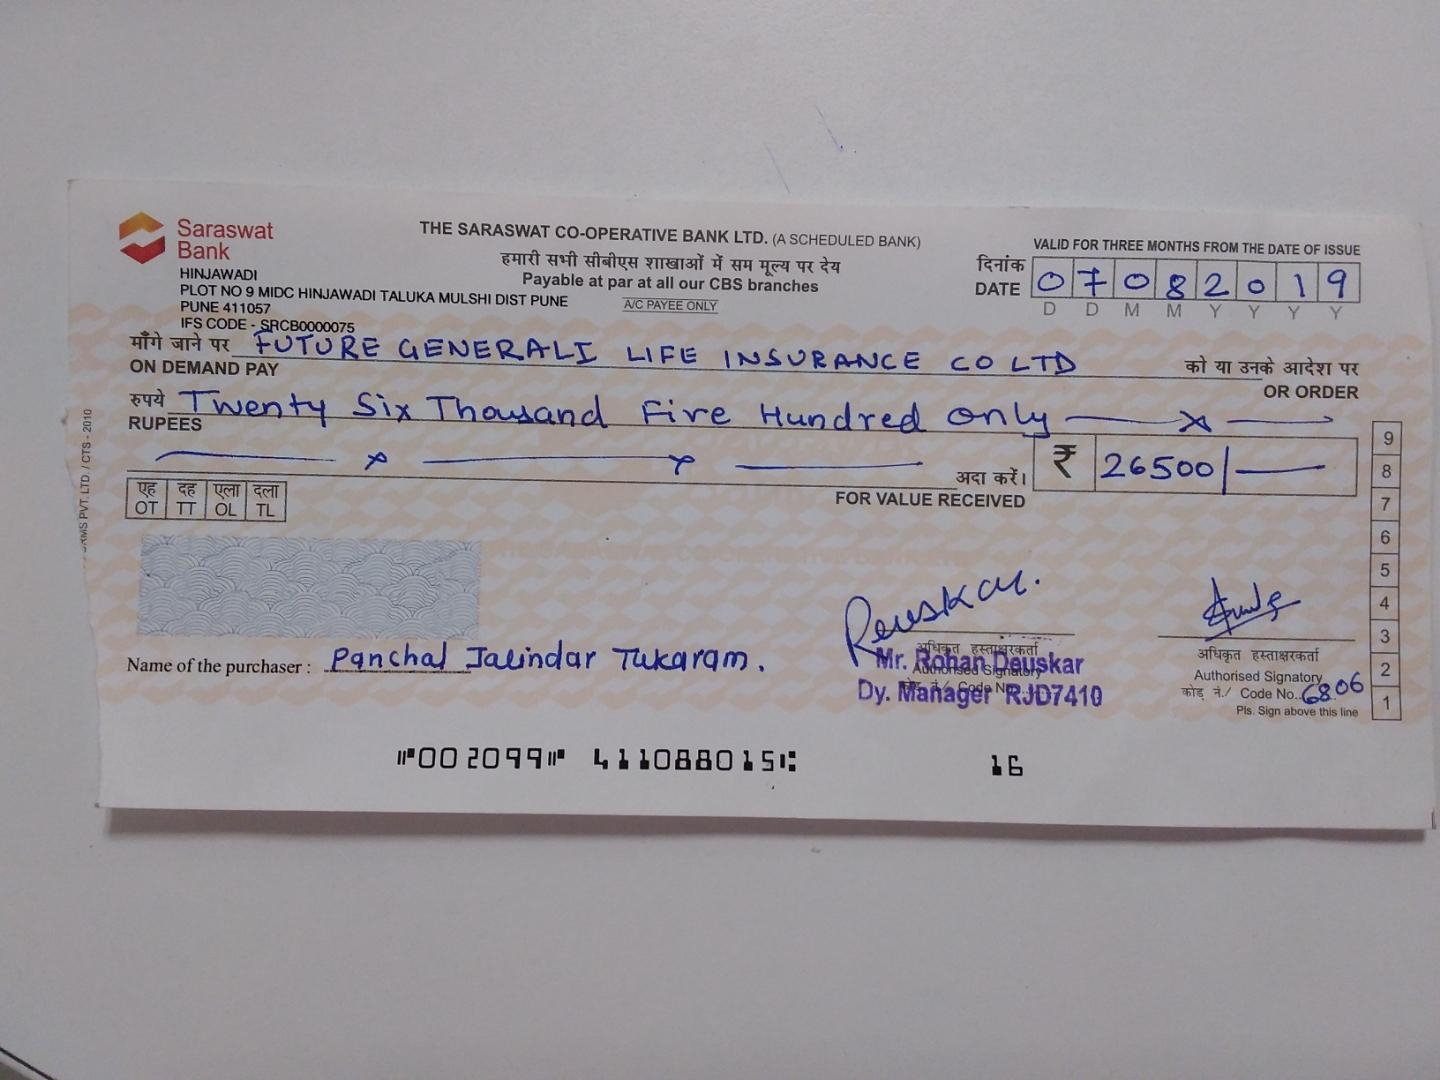 Saraswat
Bank
HINJAWADI
PLOT NO 9 MIDC HINJAWADI TALUKA MULSHI DIST PUNE
PUNE 411057
IFS CODE - SRCB0000075
THE SARASWAT CO-OPERATIVE BANK LTD. (A SCHEDULED BANK)
हमारी सभी सीबीएस शाखाओं में सम मूल्य पर देय
Payable at par at all our CBS branches
A/C PAYEE ONLY
VALID FOR THREE MONTHS FROM THE DATE OF ISSUE
दिनांक
DATE 0 7 0 8 2 0 1 9
D D M M Y Y Y Y
माँगे जाने पर FUTURE GENERALI LIFE INSURANCE CO LTD को या उनके आदेश पर
ON DEMAND PAY OR ORDER
रुपये Twenty Six Thousand Five Hundred Only
RUPEES
अदा करें। ₹ 26500/
FOR VALUE RECEIVED
एह दह एला दला
OT TT OL TL
PVT. LTD. / CTS - 2010
9
8
7
6
5
4
3
2
1
Name of the purchaser : Panchal Jalindar Tukaram.
अधिकृत हस्ताक्षरकर्ता
Authorised Signatory
Mr. Rohan Deuskar
Dy. Manager RJD7410
अधिकृत हस्ताक्षरकर्ता
Authorised Signatory
कोड नं./ Code No. 6806
Pls. Sign above this line
⑈002099⑈ 411088015⑆ 16